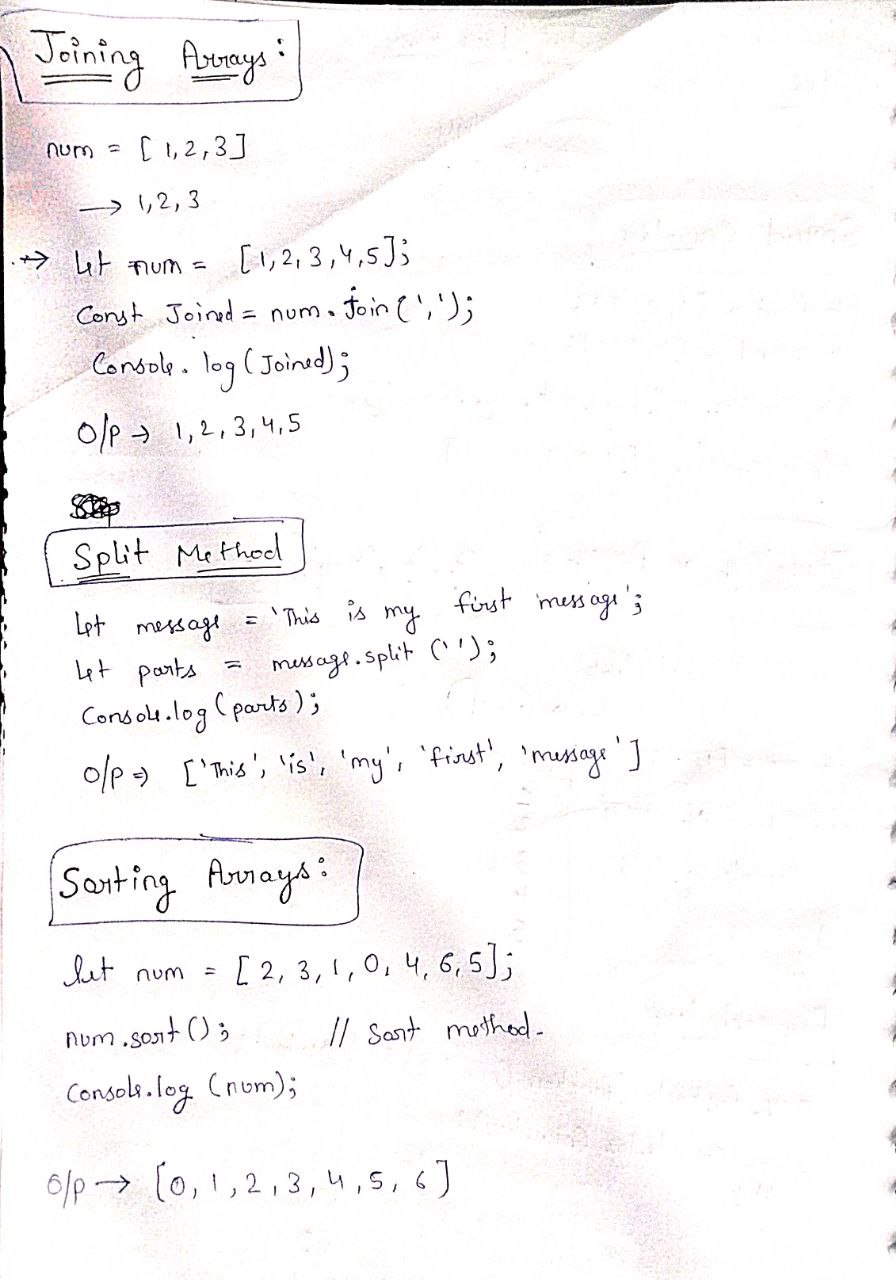 Joining Arrays:
num = [1,2,3]
→ 1,2,3
→ Let num = [1,2,3,4,5];
Const Joined = num.Join(',');
Console.log(Joined);
O/P → 1,2,3,4,5
Split Method
Let message = 'This is my first message';
Let parts = message.split ('');
Console.log(parts);
O/P ⇒ ['This', 'is', 'my', 'first', 'message']
Sorting Arrays:
let num = [2, 3, 1, 0, 4, 6, 5];
num.sort(); // Sort method.
Console.log (num);
O/P → [0, 1, 2, 3, 4, 5, 6]